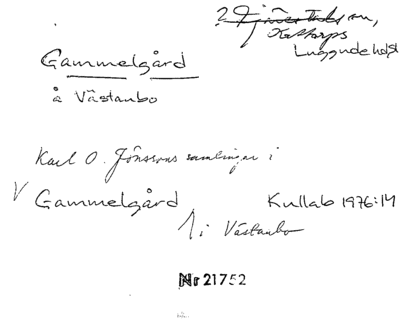 Luggude hd
Gammelgård
å Västanbo
Karl O. Jönssons samlingar i
V Gammelgård Kullab 1976:14
i Västanbo
Nr 21752